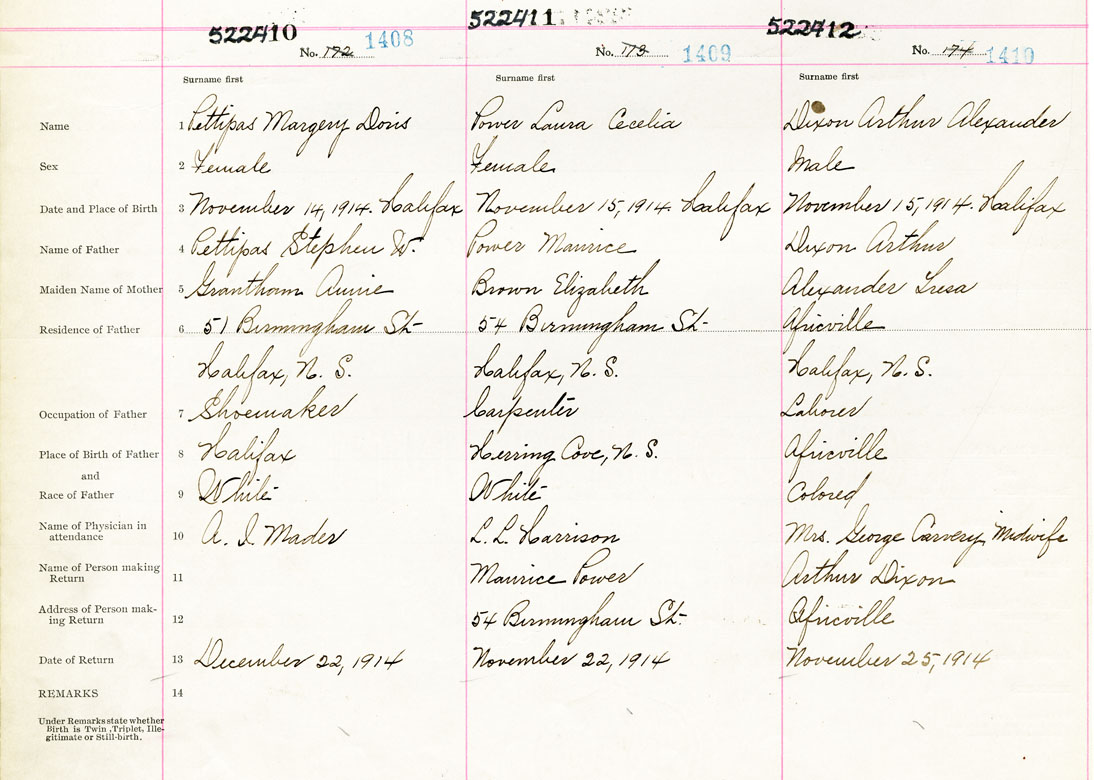 522410 522411 522412
No. 172 1408 No. 173 1409 No. 174 1410
Surname first Surname first Surname first
Name 1 Pettipas Margery Doris Power Laura Cecelia Dixon Arthur Alexander
Sex 2 Female Female Male
Date and Place of Birth 3 November 14, 1914. Halifax November 15, 1914. Halifax November 15, 1914. Halifax
Name of Father 4 Pettipas Stephen W. Power Maurice Dixon Arthur
Maiden Name of Mother 5 Grantham Annie Brown Elizabeth Alexander Tresa
Residence of Father 6 51 Birmingham St- 54 Birmingham St- Africville
Halifax, N. S. Halifax, N. S. Halifax, N. S.
Occupation of Father 7 Shoemaker Carpenter Laborer
Place of Birth of Father 8 Halifax Herring Cove, N. S. Africville
and
Race of Father 9 White White Colored
Name of Physician in
attendance 10 A. I. Mader L. L. Harrison Mrs. George Carvery, Midwife
Name of Person making
Return 11 Maurice Power Arthur Dixon
Address of Person mak-
ing Return 12 54 Birmingham St. Africville
Date of Return 13 December 22, 1914 November 22, 1914 November 25, 1914
REMARKS 14
Under Remarks state whether
Birth is Twin, Triplet, Ille-
gitimate or Still-birth.